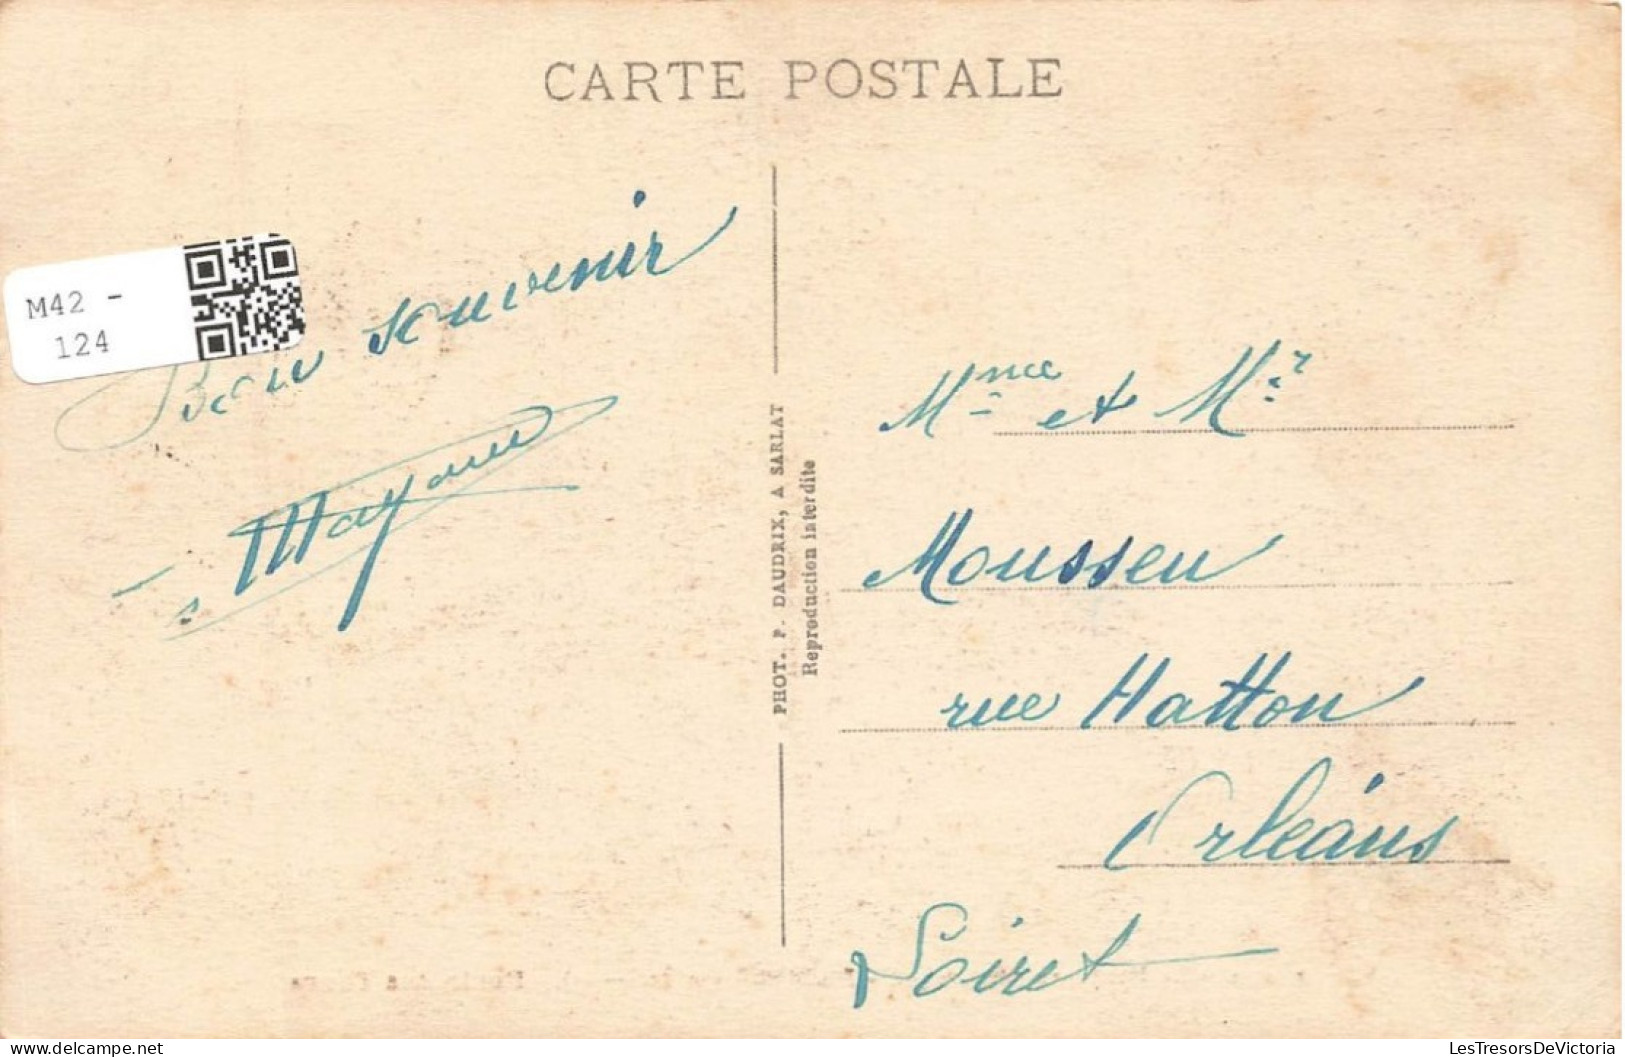 CARTE POSTALE
M42 -
124
Bon souvenir
PHOT. P. DAUDRIX, A SARLAT
Reproduction interdite
Mme et Mr
Mousseu
rue Hatton
Orléans
Loiret
www.delcampe.net
LesTresorsDeVictoria